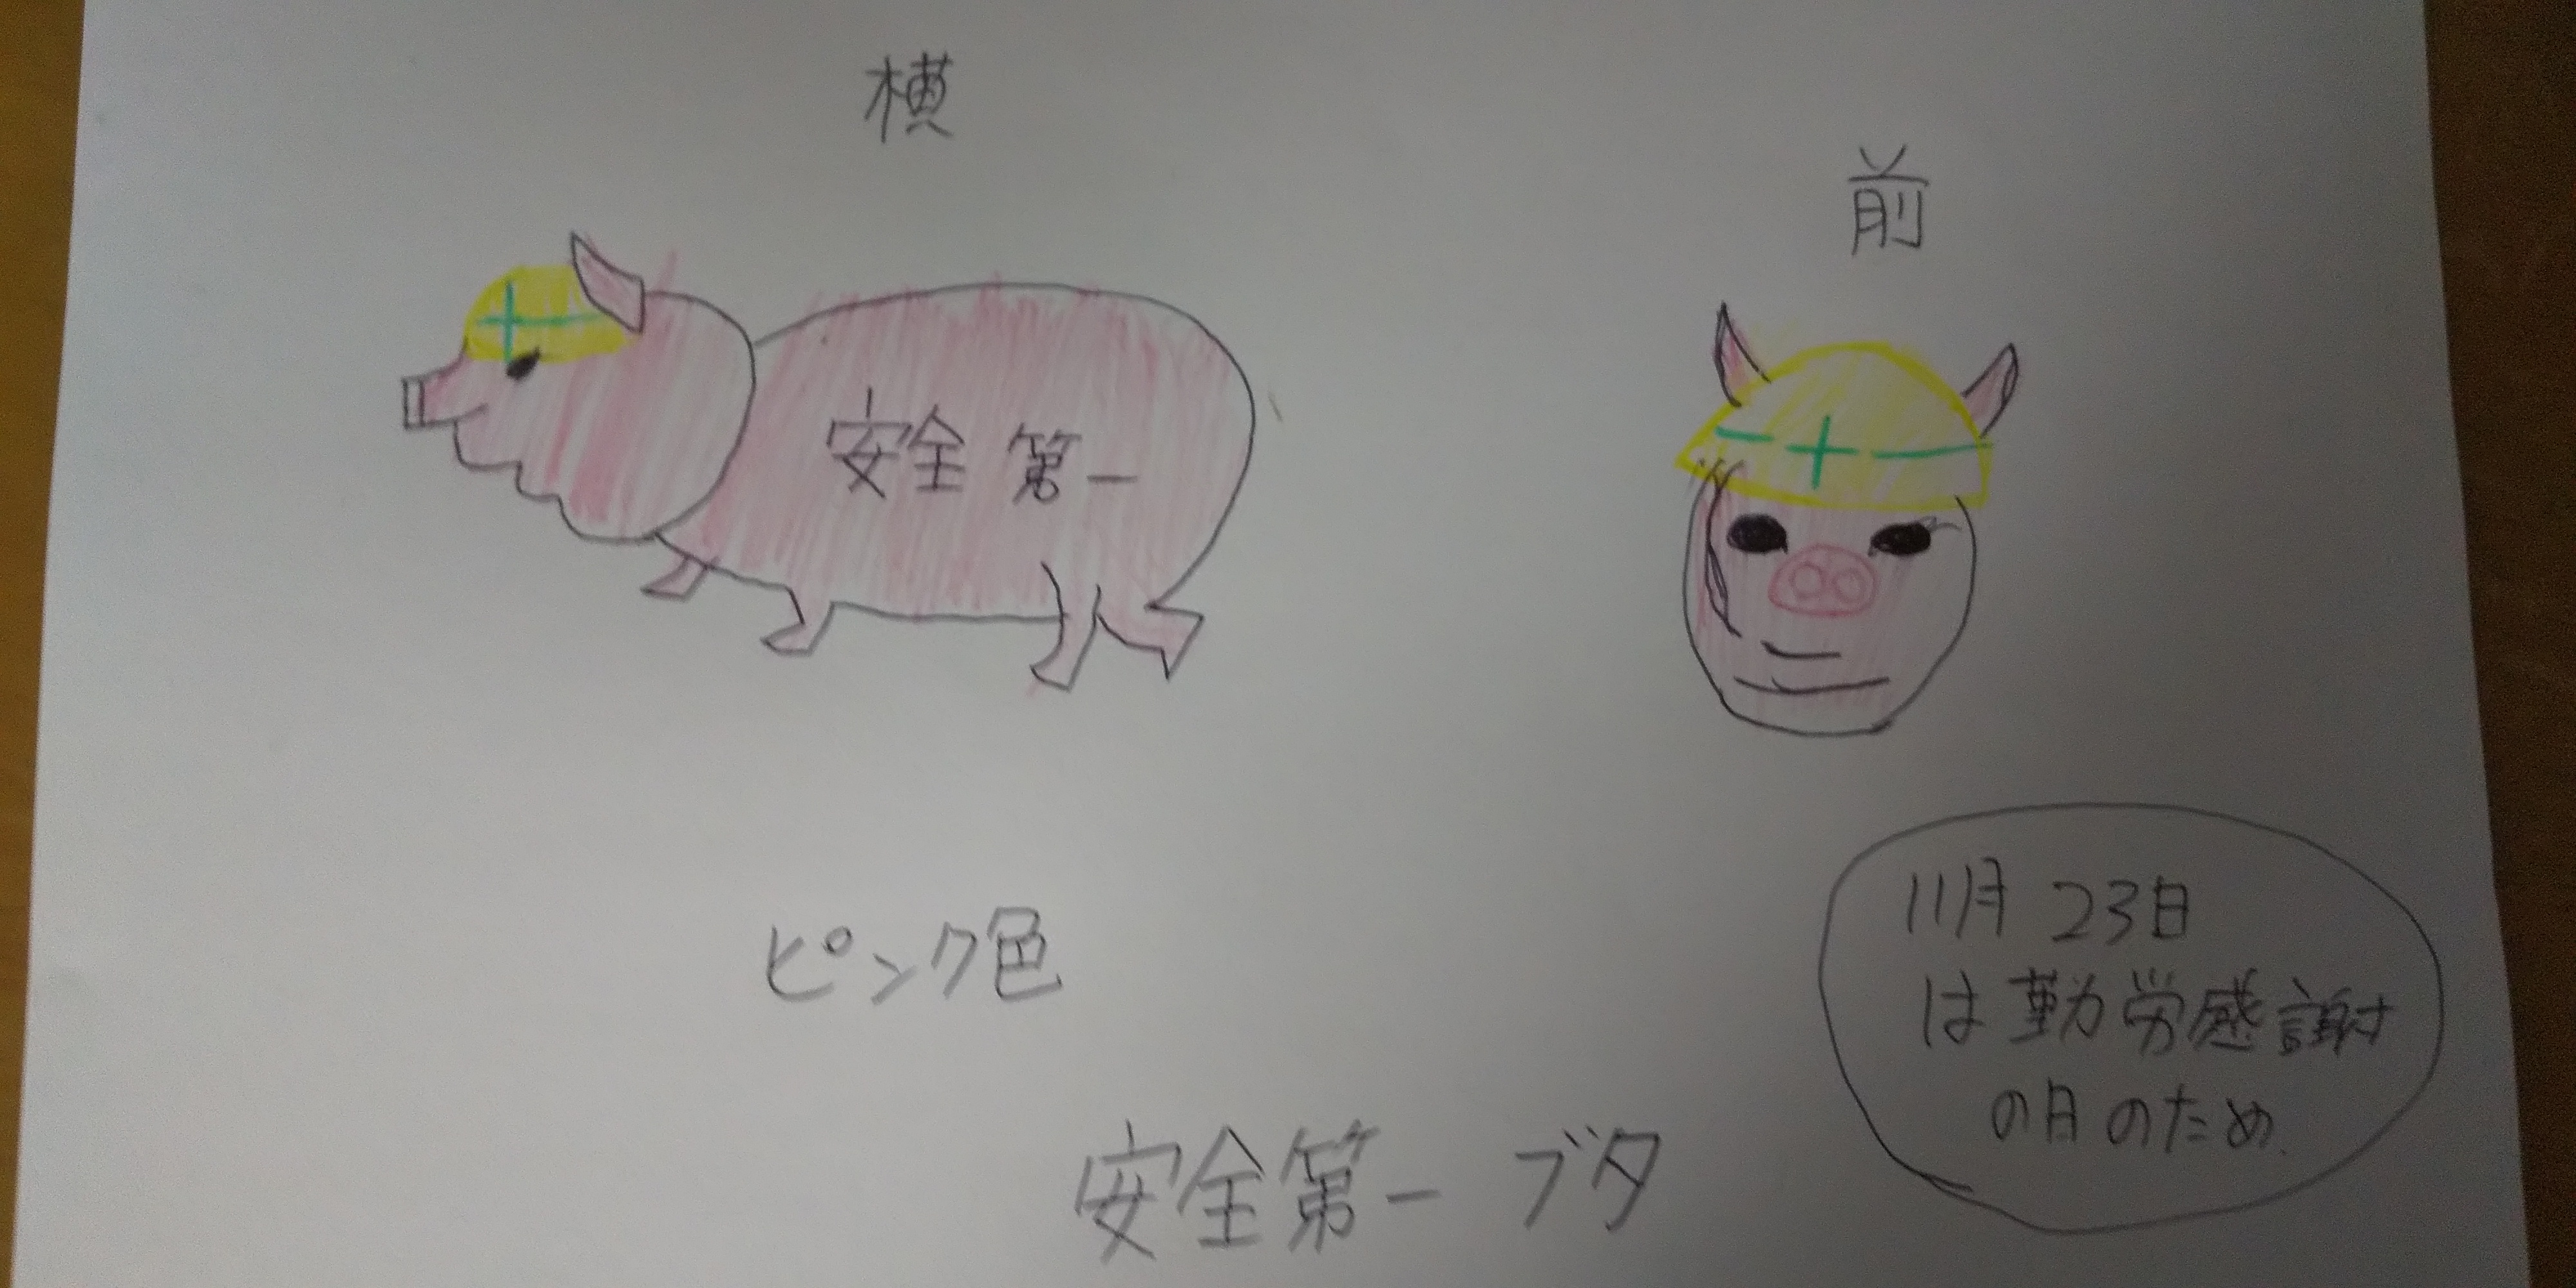 横
前
安全第一
ピンク色
11月23日
は勤労感謝
の日のため
安全第一ブタ